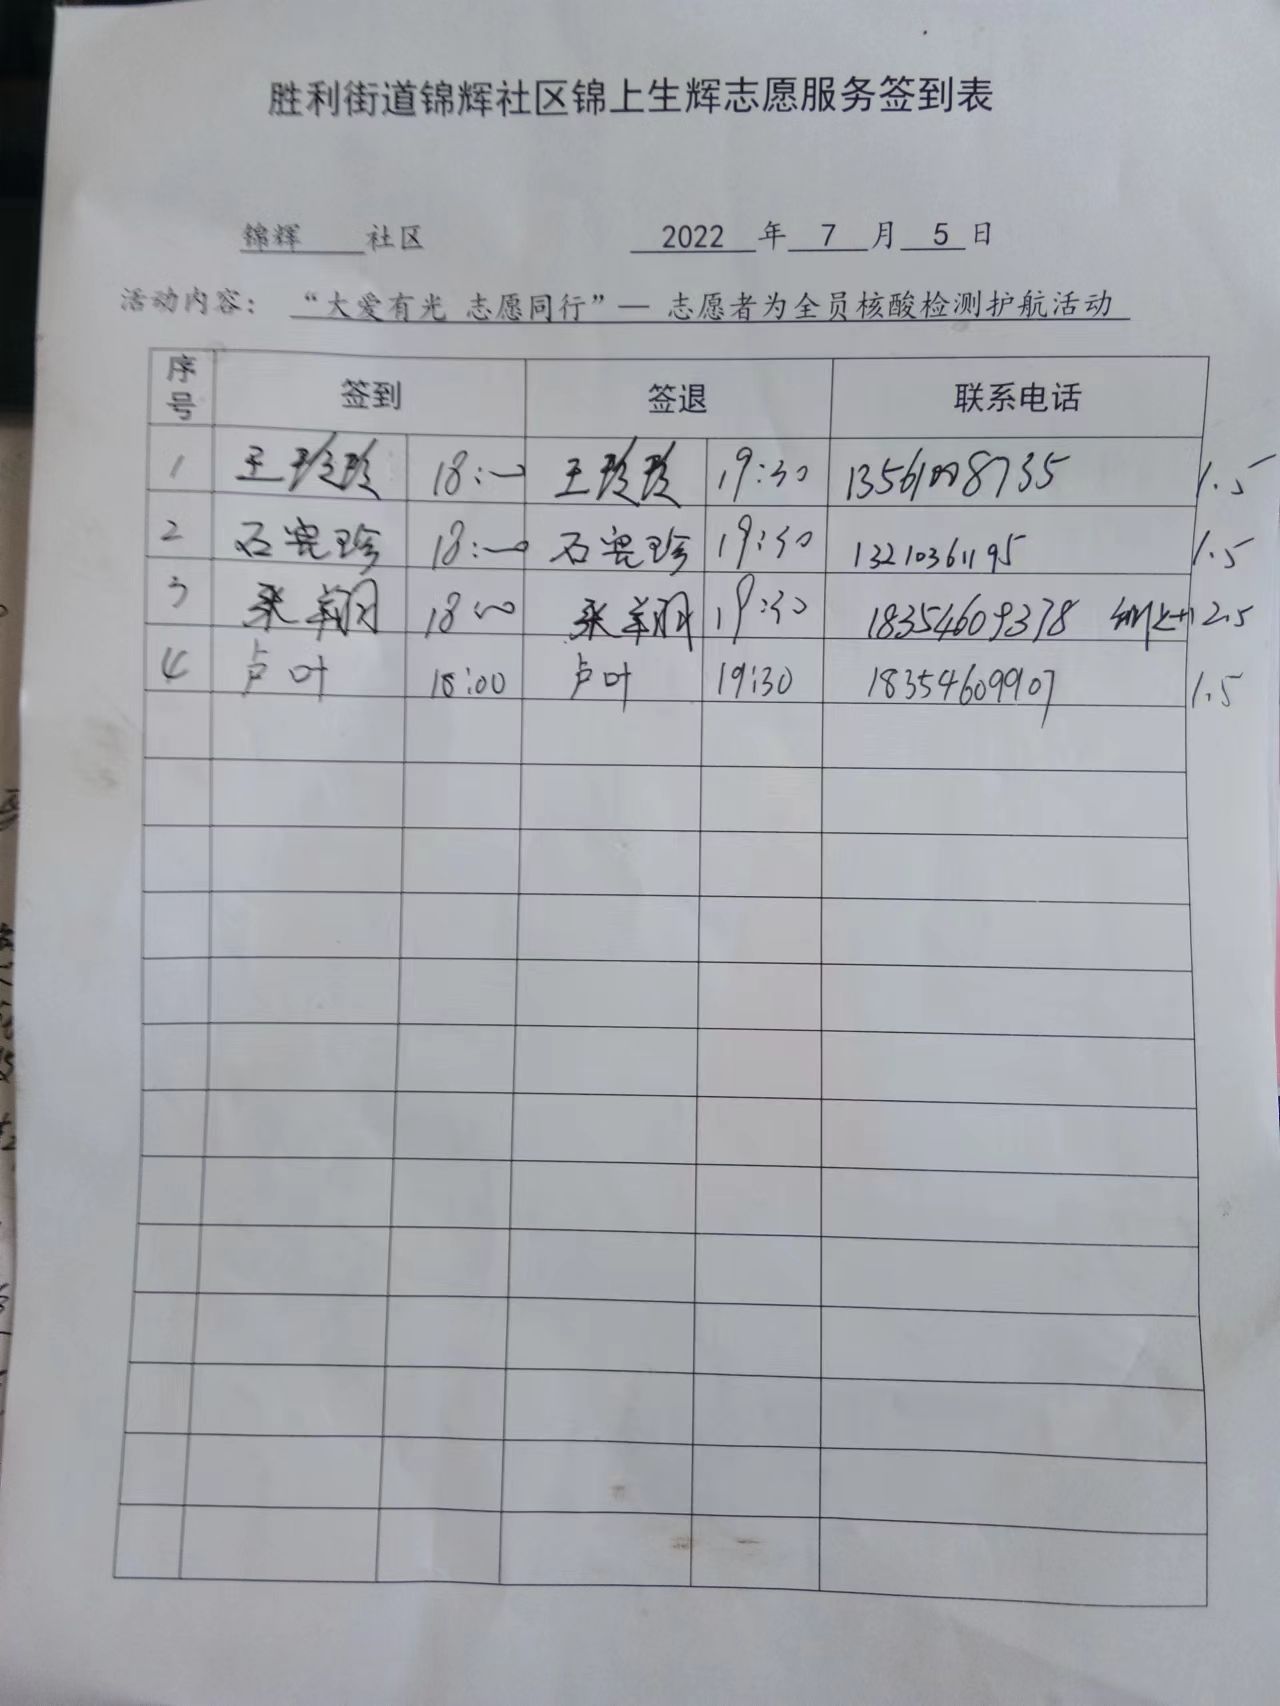 胜利街道锦辉社区锦上生辉志愿服务签到表
锦辉 社区 2022 年 7 月 5 日
活动内容： “大爱有光 志愿同行”— 志愿者为全员核酸检测护航活动
序号 签到 签退 联系电话
1 王玲玲 18:00 王玲玲 19:30 13561008735 1.5
2 石 珍 18:00 石 珍 19:30 13210361195 1.5
3 张翔 18:00 张翔 19:30 18354609378 2.5
4 卢叶 18:00 卢叶 19:30 18354609907 1.5